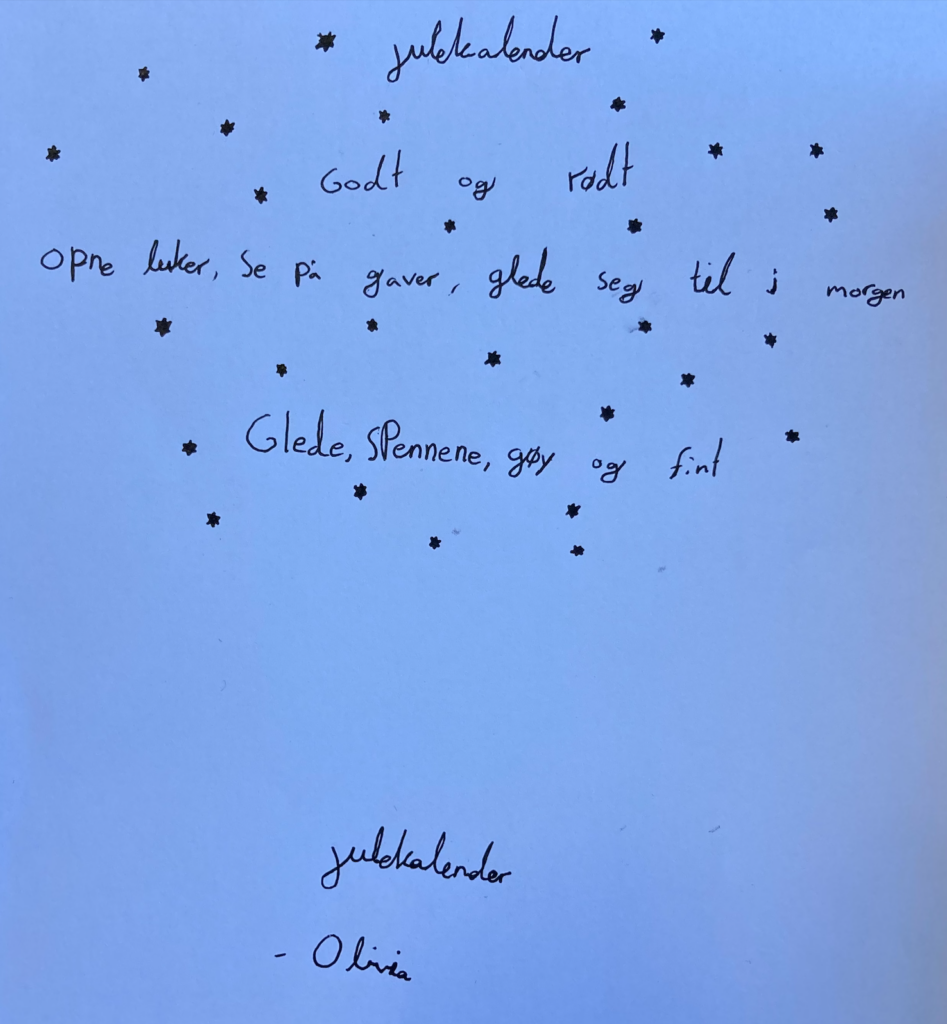 julekalender
Godt og rødt
opne luker, se på gaver, glede seg til i morgen
Glede, spennene, gøy og fint
julekalender
- Olivia